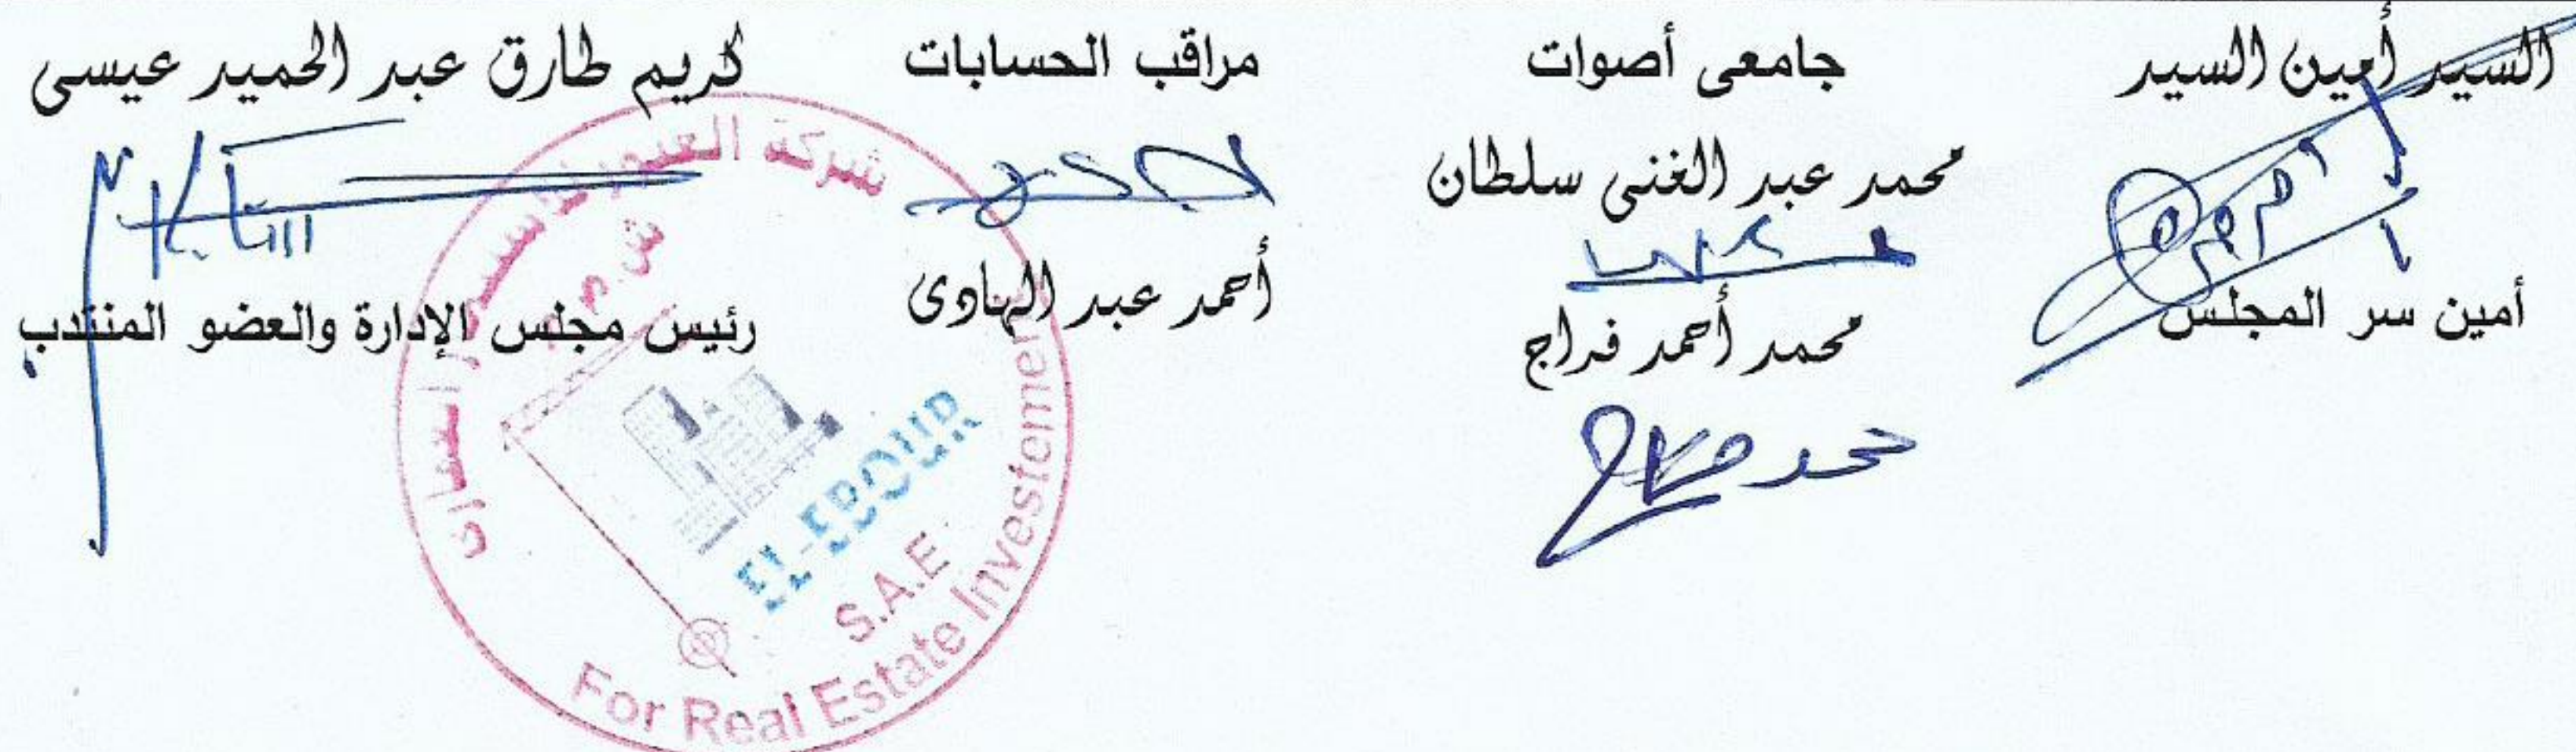 السيد أمين السيد
أمين سر المجلس
جامعى أصوات
محمد عبد الغنى سلطان
محمد أحمد فراج
مراقب الحسابات
أحمد عبد الهادى
كريم طارق عبد الحميد عيسى
رئيس مجلس الإدارة والعضو المنتدب
شركة العبور
ش.م.م
EL-EBOUR
S.A.E
For Real Estate Investement